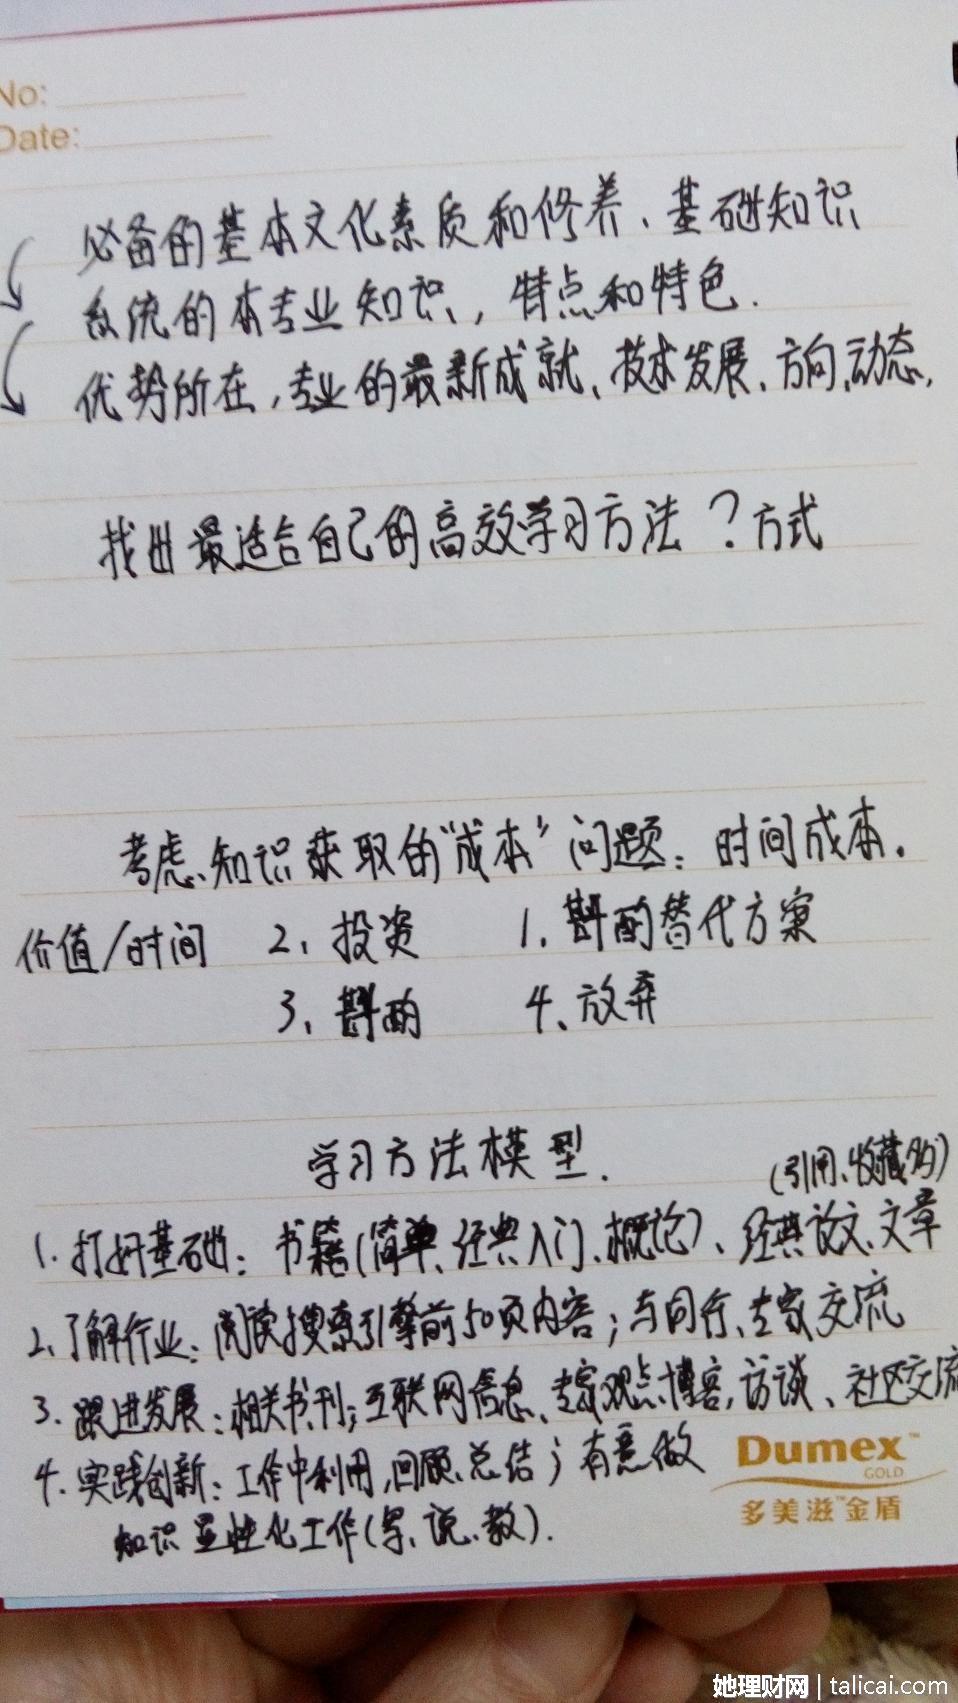 No:
Date:
必备的基本文化素质和修养、基础知识
系统的本专业知识,特点和特色.
优势所在,专业的最新成就、技术发展、方向、动态,
找出最适合自己的高效学习方法?方式
考虑知识获取的“成本”问题:时间成本.
价值/时间 2、投资 1、斟酌替代方案
3、斟酌 4、放弃
学习方法模型.
(引用、收藏的)
1.打好基础:书籍(简单、经典入门、概论)、经典论文、文章
2、了解行业:阅读搜索引擎前50页内容;与同行、专家交流
3.跟进发展:相关书刊;互联网信息、专家观点博客,访谈、社区交流
4.实践创新:工作中利用,回顾、总结;有意做
知识显性化工作(写、说、教).
Dumex™
GOLD
多美滋™金盾
她理财网|talicai.com